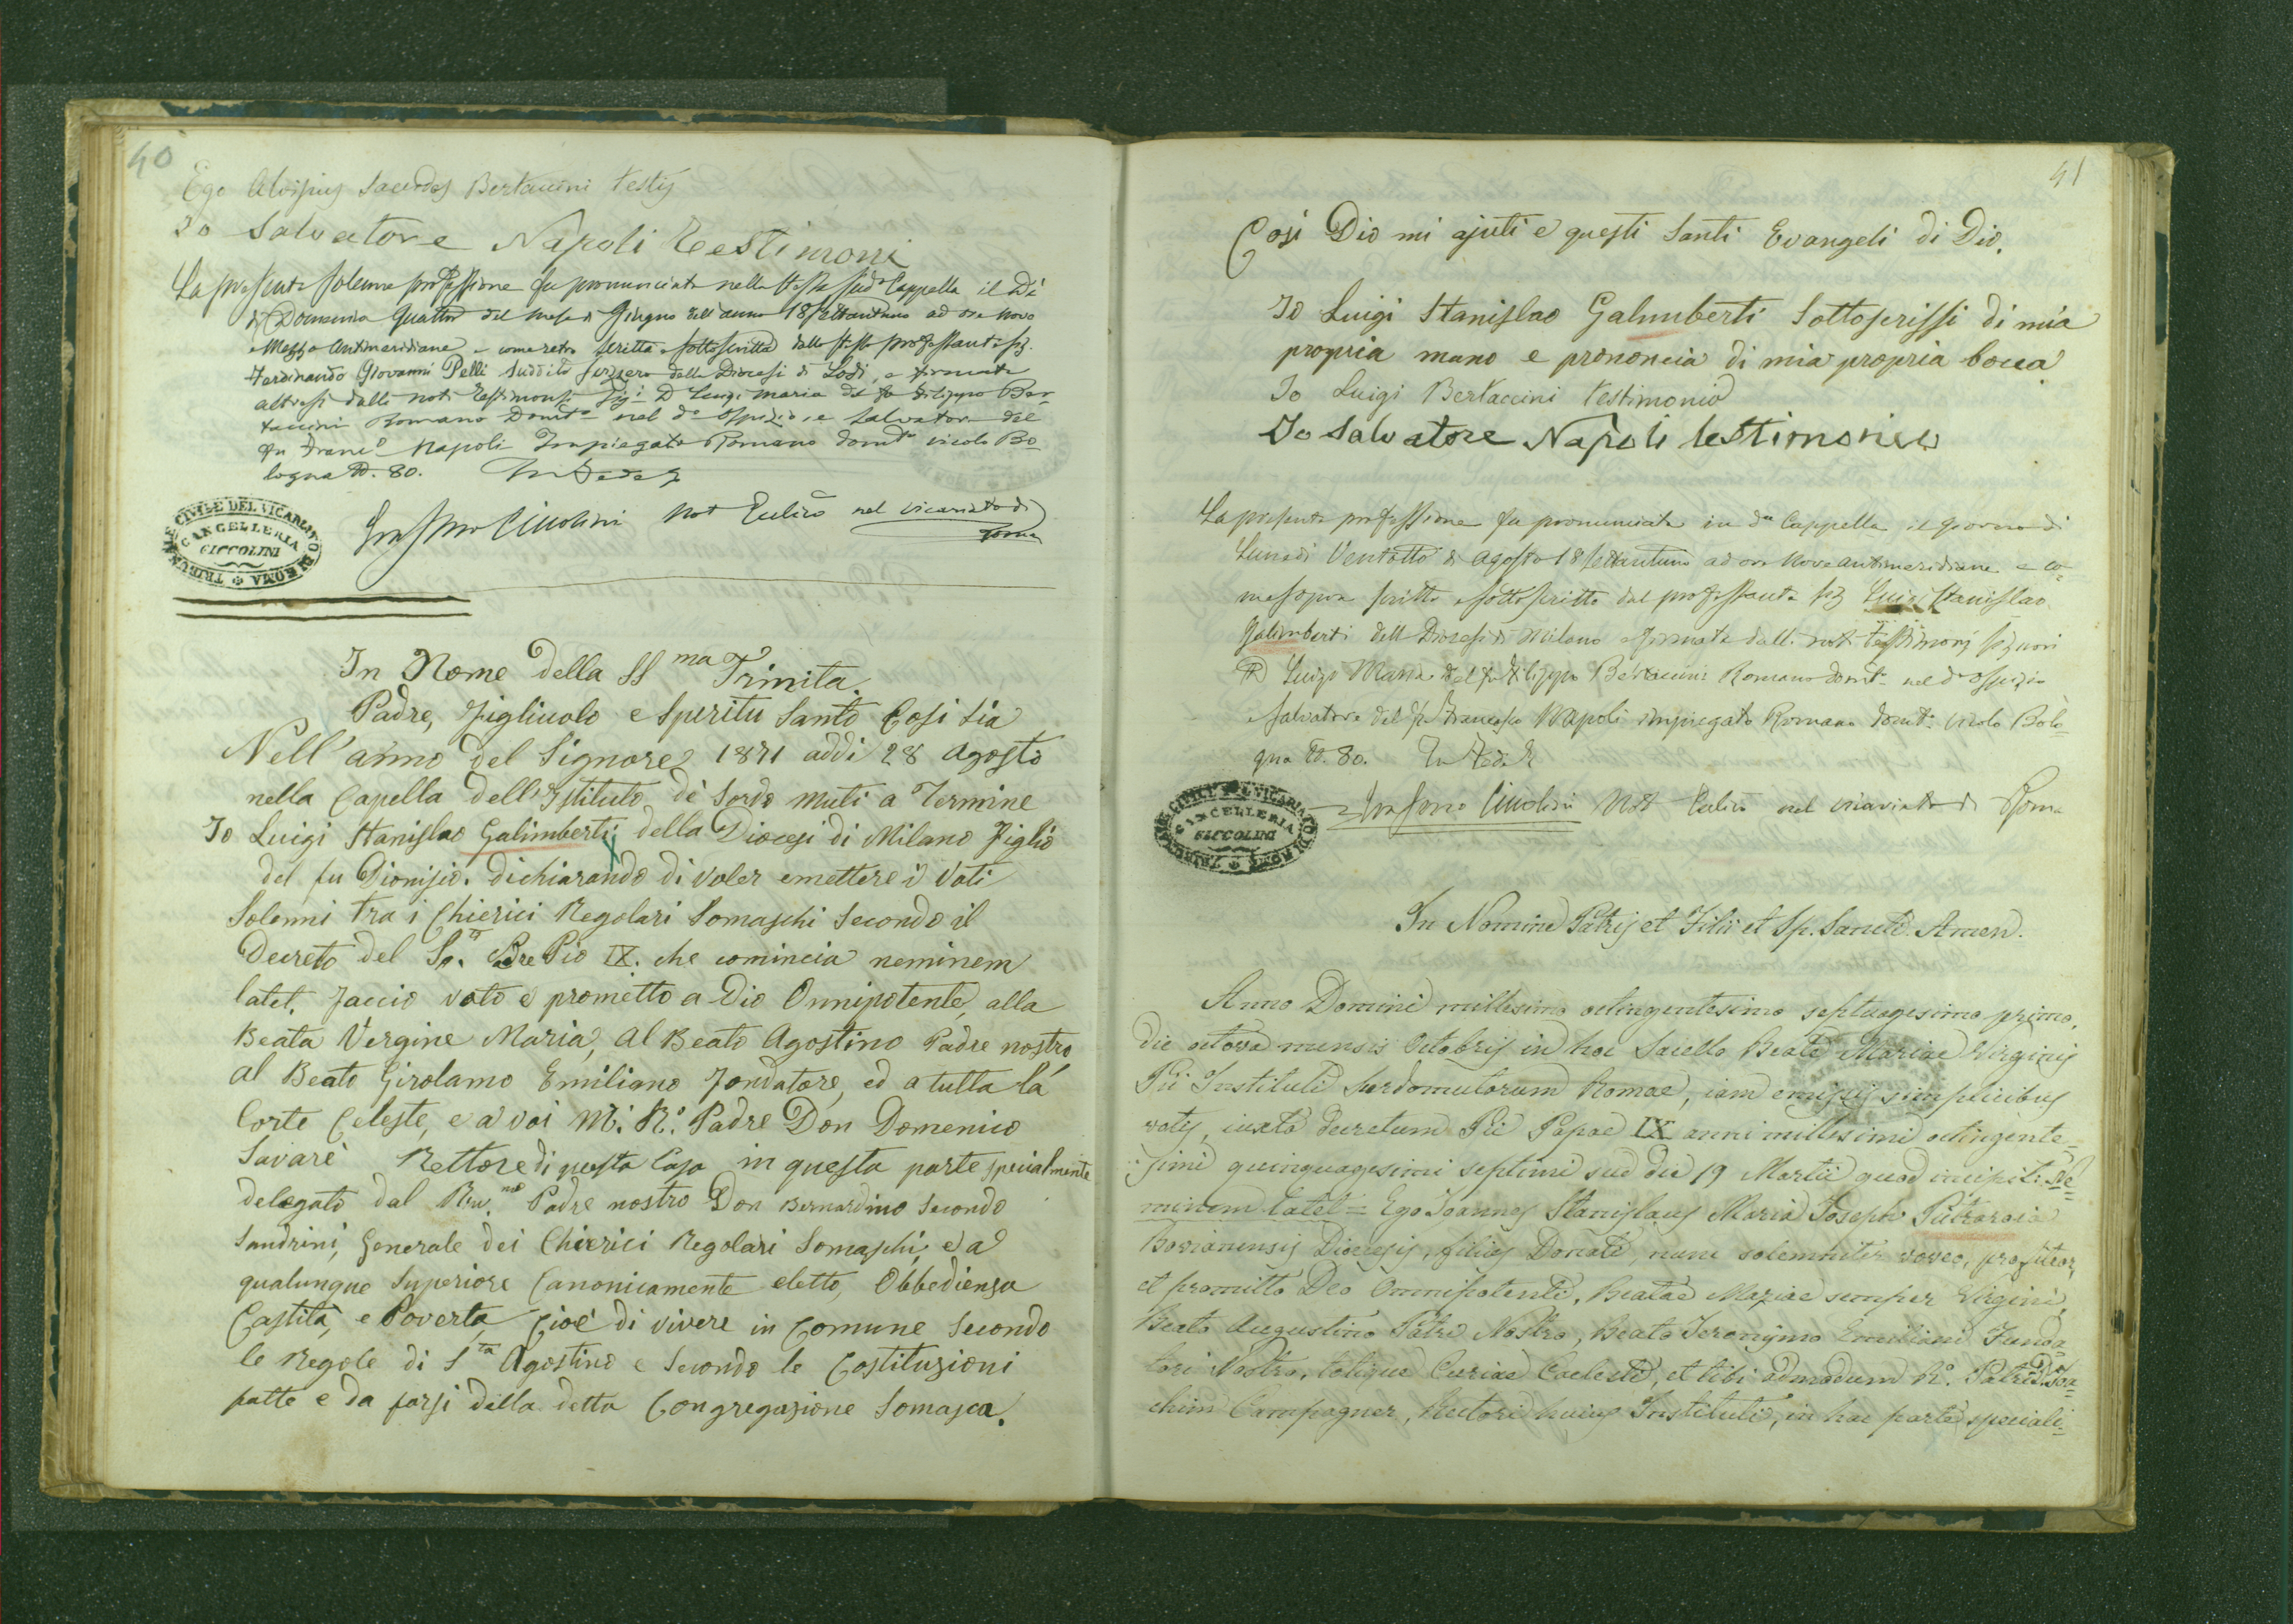 40
Ego Aloisius Sacerdos Bertaccini testis
Io Salvatore Napoli Testimoni
La presente solenne professione fu pronunciata nella stessa sud.a Cappella il dì
di Domenica quattro del mese di Giugno dell'anno 18settantuno ad ore nove
e mezzo antimeridiane e come retro scritta e sottoscritta dallo stesso professante sig.
Ferdinando Giovanni Pelli suddito svizzero della Diocesi di Lodi, e firmata
altresì dalli noti testimonj sig.i D Luigi Maria del fu Filippo Ber-
taccini Romano domto nel do Ospizio, e Salvatore del
fu Franco Napoli Impiegato Romano domto vicolo Bo-
logna N. 80. In Fede
Ciccolini Not Pubco nel vicariato di
Roma
TRIBUNALE CIVILE DEL VICARIATO DI ROMA
CANCELLERIA
CICCOLINI
In Nome della SSma Trinita.
Padre, Figliuolo e Speritu Santo Cosi sia
Nell'anno del Signore 1871 addi 28 Agosto
nella Capella dell'Istituto de' Sordo muti a Termine
Io Luigi Stanislao Galimberti della Diocesi di Milano Figlio
del fu Dionisio. dichiarando di voler emettere i Voti
Solenni tra i Chierici Regolari Somaschi Secondo il
Decreto del So. Pdre Pio IX. che comincia neminem
latet. Faccio voto e prometto a Dio Onnipotente, alla
Beata Vergine Maria, al Beato Agostino Padre nostro
al Beato Girolamo Emiliano Fondatore, ed a tutta la
Corte Celeste, e a voi M. R.o Padre Don Domenico
Savarè Rettore di questa Casa in questa parte specialmente
delegato dal Rev.mo Padre nostro Don Bernardino Secondo
Sandrini, Generale dei Chierici Regolari Somaschi, e a
qualunque Superiore Canonicamente eletto, Obbedienza
Castità, e Poverta, Cioè di vivere in Comune Secondo
le Regole di Sto Agostino e Secondo le Costituzioni
fatte e da farsi della detta Congregazione Somasca.
41
Cosi Dio mi ajuti e questi Santi Evangeli di Dio.
Io Luigi Stanislao Galimberti Sottoscrissi di mia
propria mano e prononcia di mia propria bocca
Io Luigi Bertaccini testimonio
Io Salvatore Napoli testimonio
La presente professione fu pronunciata in da Cappella il giorno di
Lunedi Ventotto di Agosto 18settantuno ad ore Nove antimeridiane e co-
me sopra scritta e sottoscritta dal professante sig Luigi Stanislao
Galimberti della Diocesi di Milano e firmata dalli noti testimonj signori
D Luigi Maria del fu Filippo Bertaccini Romano domto nel do Ospizio
e Salvatore del fu Francesco Napoli impiegato Romano domto vicolo Bolo-
gna N. 80. In Fede
Ciccolini Not Pubco nel vicariato di Roma
TRIBUNALE CIVILE DEL VICARIATO DI ROMA
CANCELLERIA
CICCOLINI
In Nomine Patris et Filii et Sp. Sancti. Amen.
Anno Domini millesimo octingentesimo septuagesimo primo,
die octava mensis Octobris in hoc Sacello Beatae Mariae Virginis
Pii Instituti Surdomutorum Romae, iam emissis simplicibus
votis, iuxta decretum Pii Papae IX anni millesimi octingente-
simi quinquagesimi septimi sub die 19 Martii quod incipit: Ne-
minem latet = Ego Joannes Stanislaus Maria Joseph Pietraroia
Bovianensis Diocesis, filius Donati, nunc solemniter voveo, profiteor,
et promitto Deo Omnipotenti, Beatae Mariae semper Virgini,
Beato Augustino Patri Nostro, Beato Jeronymo Emiliani Funda-
tori Nostro, totique Curiae Coelesti, et tibi admodum R.o Patri D. Joa-
chim Campagner, Rectori huius Instituti, in hac parte speciali-